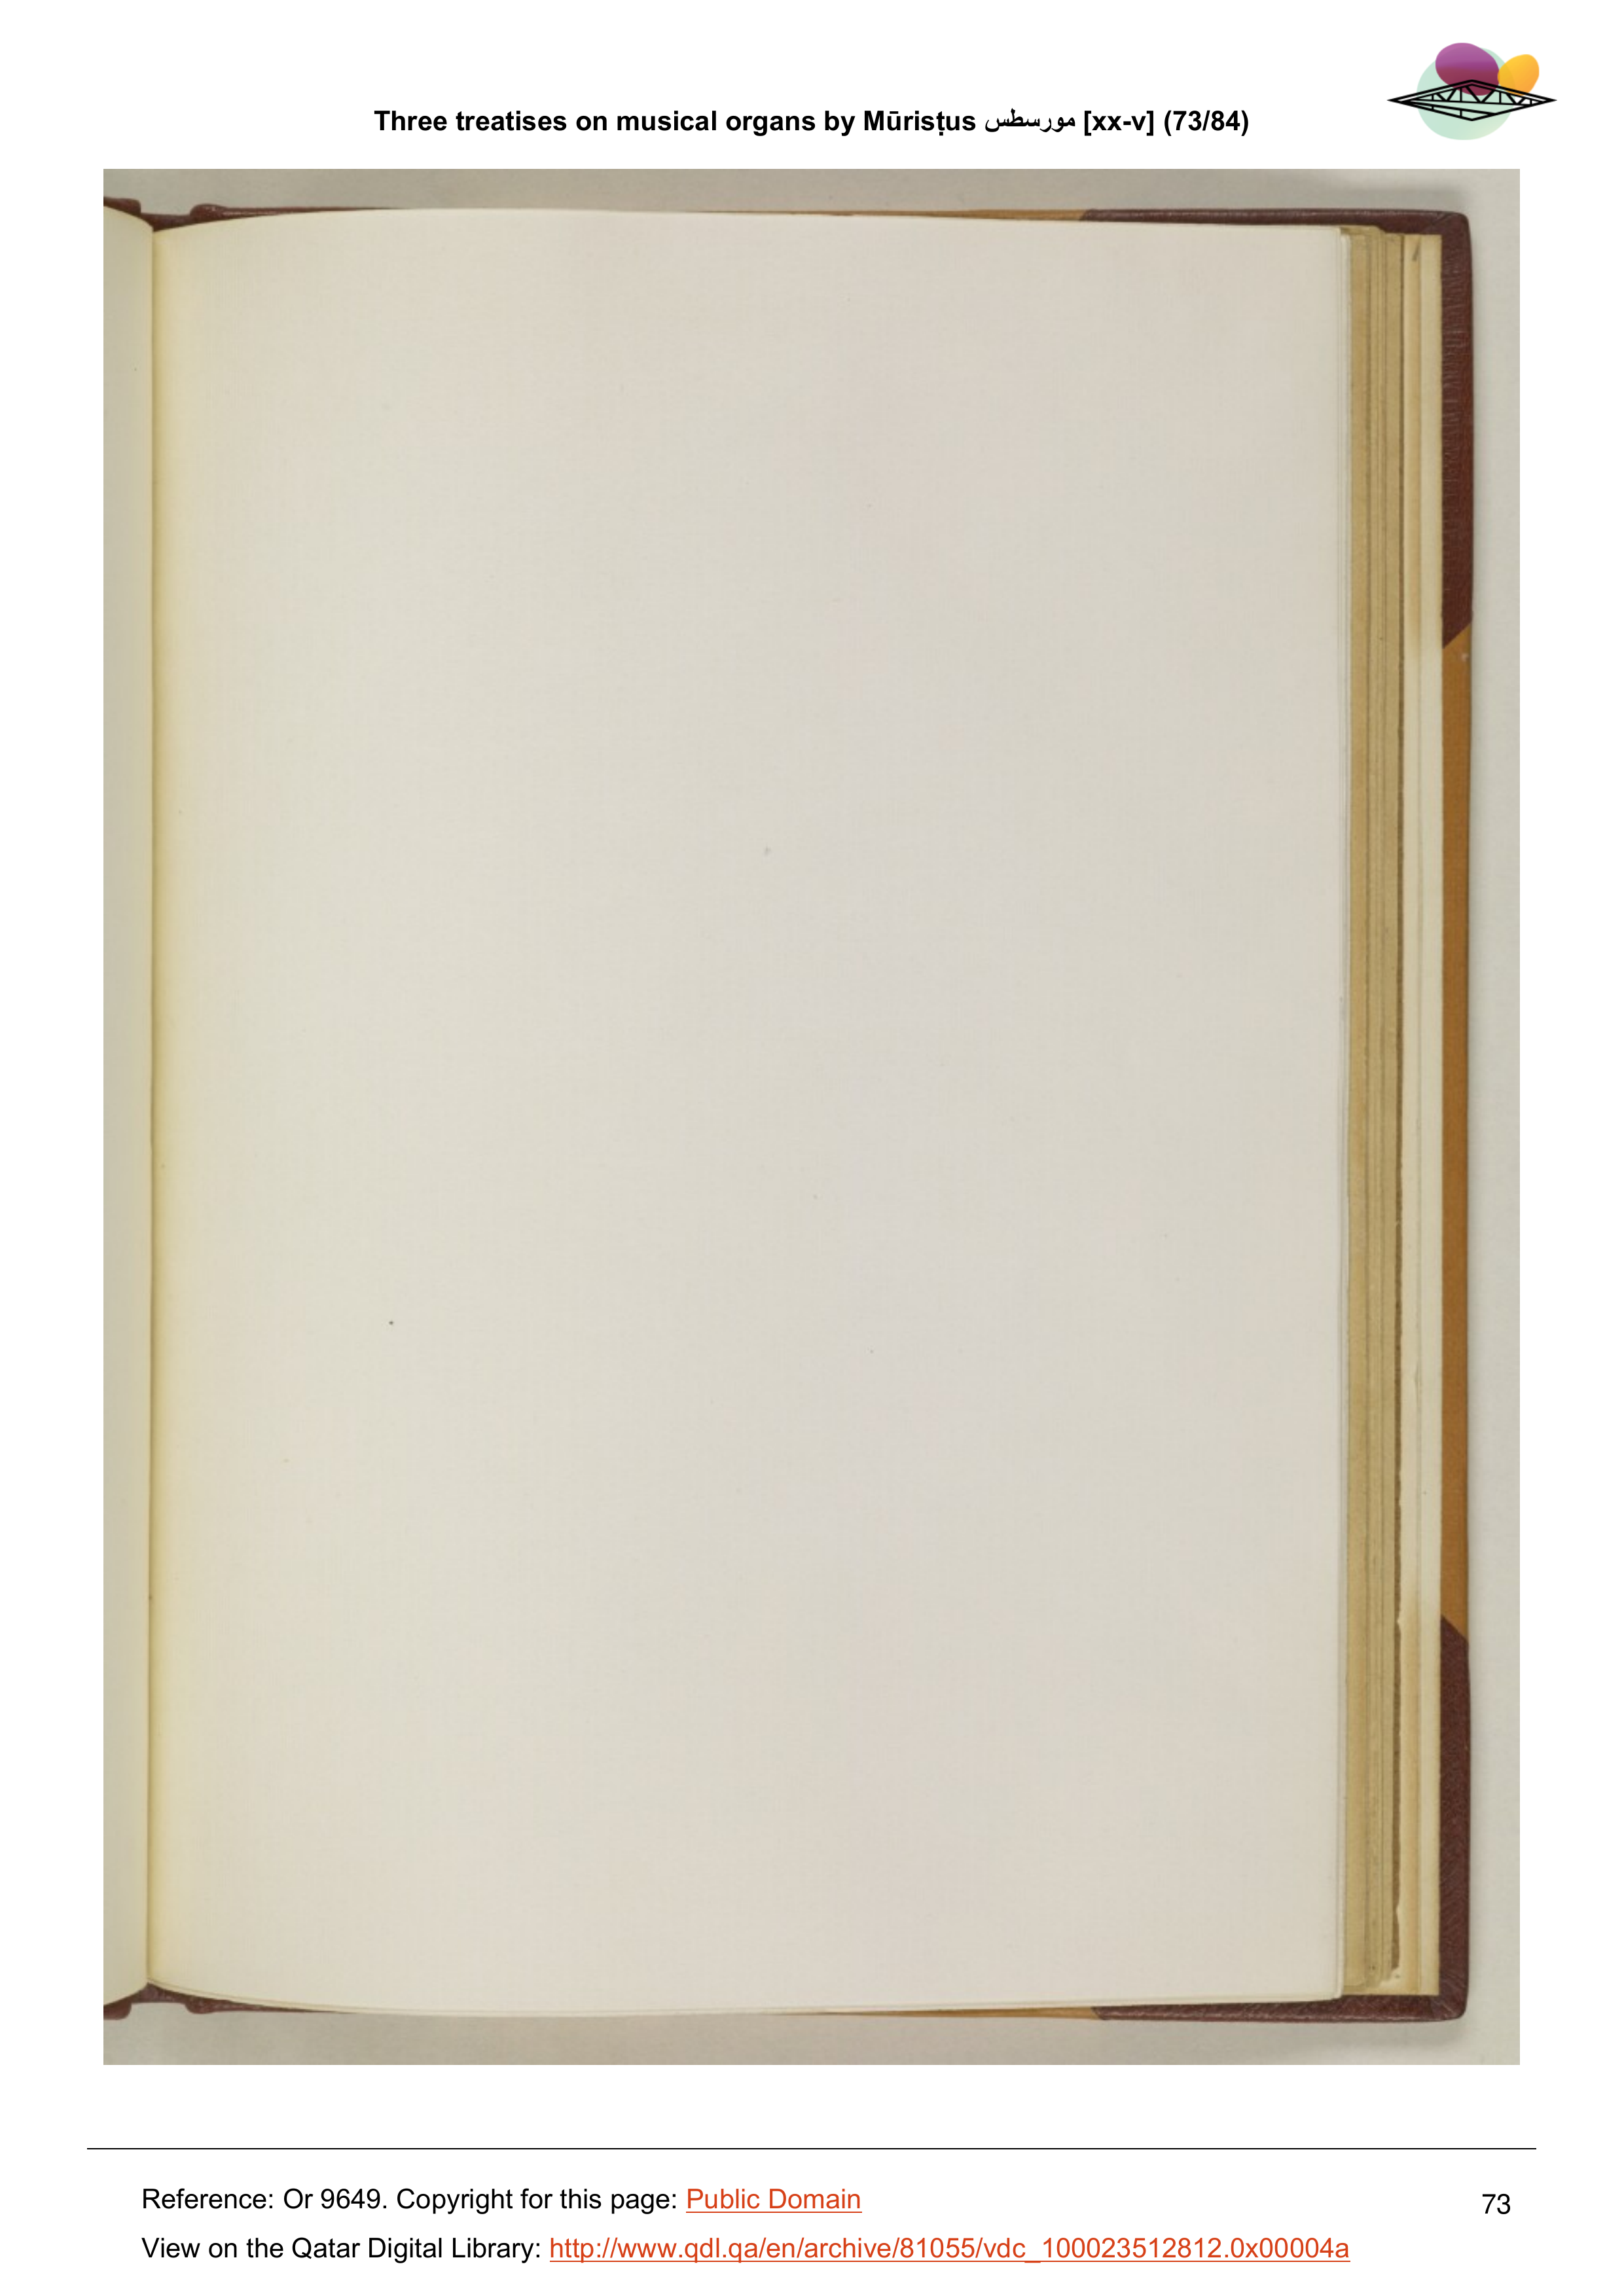 Three treatises on musical organs by Mūrisṭus مورسطس [xx-v] (73/84)
Reference: Or 9649. Copyright for this page: Public Domain
73
View on the Qatar Digital Library: http://www.qdl.qa/en/archive/81055/vdc_100023512812.0x00004a